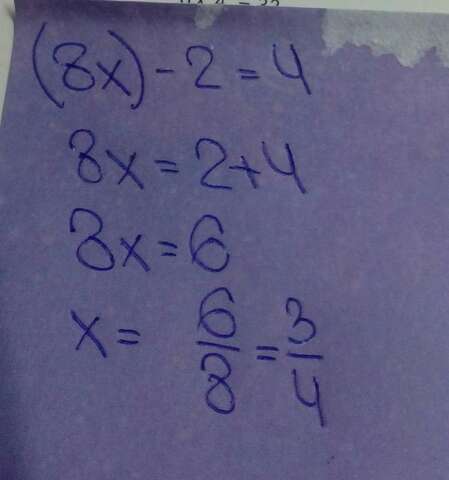 (8x) - 2 = 4
8x = 2+4
8x = 6
x = 6/8 = 3/4